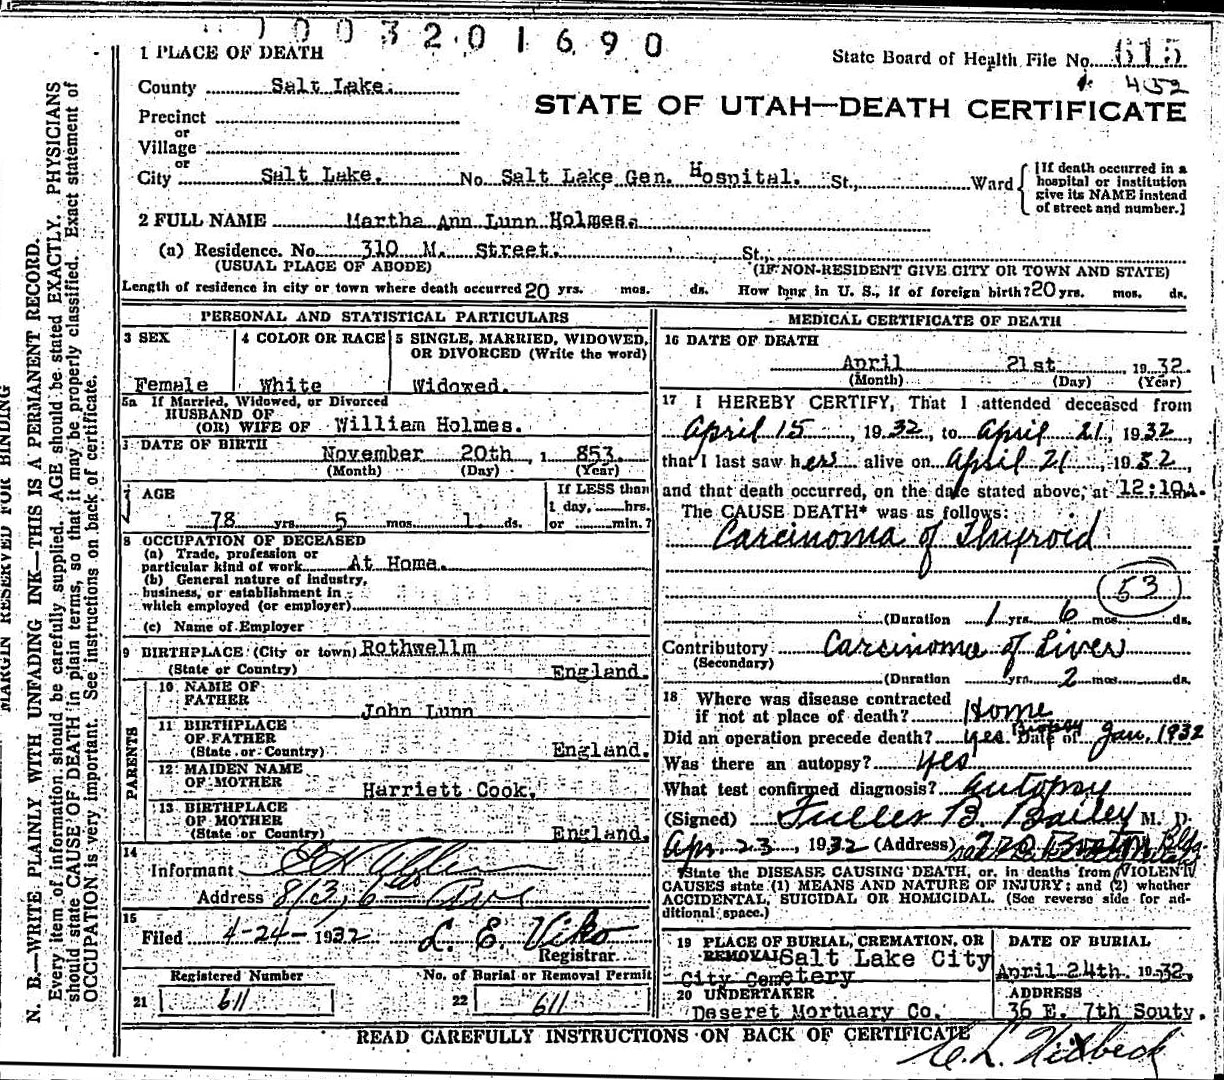 1003201690
1 PLACE OF DEATH
State Board of Health File No. 615
452
County Salt Lake.
STATE OF UTAH—DEATH CERTIFICATE
Precinct
or
Village
or
City Salt Lake. No. Salt Lake Gen. Hospital. St., Ward
[If death occurred in a hospital or institution give its NAME instead of street and number.]
2 FULL NAME Martha Ann Lunn Holmes.
(a) Residence. No. 310 M. Street. St.,
(USUAL PLACE OF ABODE) (IF NON-RESIDENT GIVE CITY OR TOWN AND STATE)
Length of residence in city or town where death occurred 20 yrs. mos. ds. How long in U. S., if of foreign birth? 20 yrs. mos. ds.
PERSONAL AND STATISTICAL PARTICULARS
3 SEX
Female
4 COLOR OR RACE
White
5 SINGLE, MARRIED, WIDOWED,
OR DIVORCED (Write the word)
Widowed.
5a If Married, Widowed, or Divorced
HUSBAND OF
(OR) WIFE OF William Holmes.
DATE OF BIRTH
November 20th, 1 853.
(Month) (Day) (Year)
7 AGE
78 yrs. 5 mos. 1. ds.
If LESS than
1 day, hrs.
or min.?
8 OCCUPATION OF DECEASED
(a) Trade, profession or
particular kind of work At Home.
(b) General nature of industry,
business, or establishment in
which employed (or employer)
(c) Name of Employer
9 BIRTHPLACE (City or town) Rothwellm
(State or Country) England.
PARENTS
10 NAME OF
FATHER John Lunn
11 BIRTHPLACE
OF FATHER
(State or Country) England.
12 MAIDEN NAME
OF MOTHER Harriett Cook.
13 BIRTHPLACE
OF MOTHER
(State or Country) England.
14
Informant
Address 813, 6th Ave
15
Filed 4-24-1932 L. E. Viko
Registrar.
Registered Number No. of Burial or Removal Permit
21 611 22 611
MEDICAL CERTIFICATE OF DEATH
16 DATE OF DEATH
April 21st 1932.
(Month) (Day) (Year)
17 I HEREBY CERTIFY, That I attended deceased from
April 15, 1932, to April 21, 1932,
that I last saw her alive on April 21, 1932,
and that death occurred, on the date stated above, at 12:10A.
The CAUSE DEATH* was as follows:
Carcinoma of Thyroid
53
(Duration 1 yrs. 6 mos. ds.
Contributory Carcinoma of Liver
(Secondary)
(Duration yrs. 2 mos. ds.
18 Where was disease contracted
if not at place of death? Home
Did an operation precede death? yes Biopsy Date of Jan. 1932
Was there an autopsy? yes
What test confirmed diagnosis? Autopsy
(Signed) Fuller B. Bailey M. D.
Apr. 23, 1932 (Address) 720 Boston Bldg
*State the DISEASE CAUSING DEATH, or, in deaths from VIOLENT
CAUSES state (1) MEANS AND NATURE OF INJURY; and (2) whether
ACCIDENTAL, SUICIDAL OR HOMICIDAL. (See reverse side for ad-
ditional space.)
19 PLACE OF BURIAL, CREMATION, OR
REMOVAL Salt Lake City
City Cemetery
DATE OF BURIAL
April 24th. 1932.
20 UNDERTAKER
Deseret Mortuary Co.
ADDRESS
36 E. 7th Souty.
READ CAREFULLY INSTRUCTIONS ON BACK OF CERTIFICATE
MARGIN RESERVED FOR BINDING
N. B.—WRITE PLAINLY WITH UNFADING INK—THIS IS A PERMANENT RECORD.
Every item of information should be carefully supplied. AGE should be stated EXACTLY. PHYSICIANS
should state CAUSE OF DEATH in plain terms, so that it may be properly classified. Exact statement of
OCCUPATION is very important. See instructions on back of certificate.